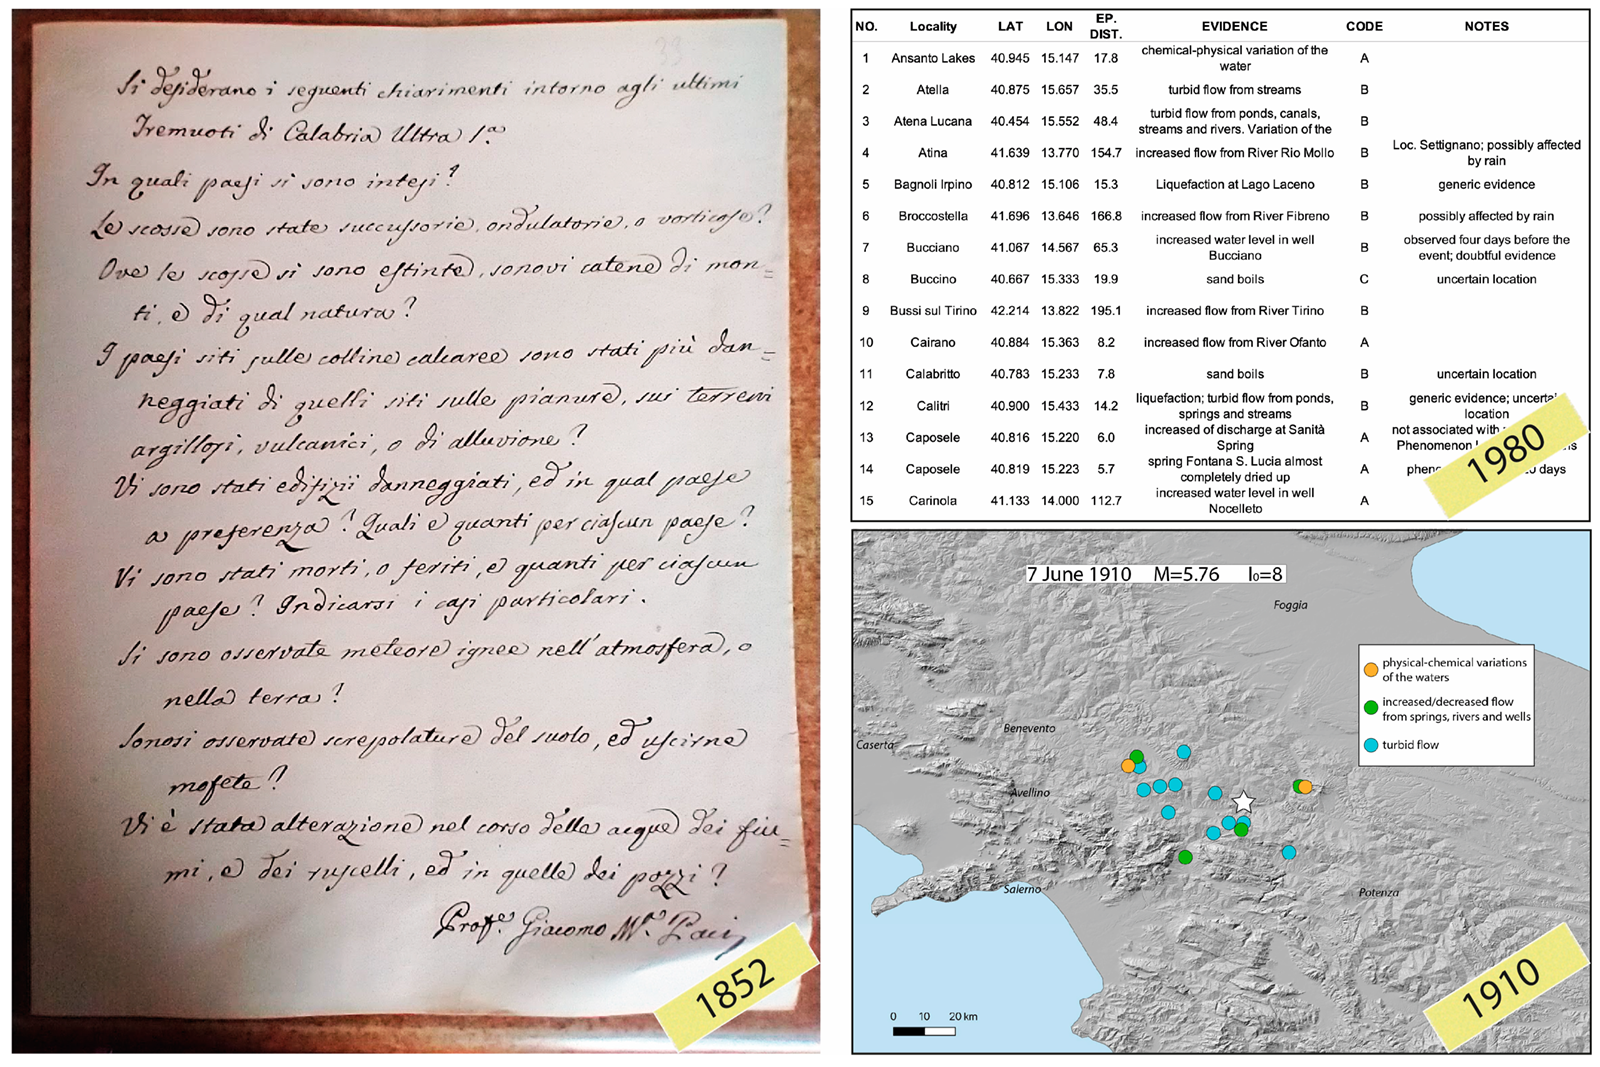 33
Si desiderano i seguenti chiarimenti intorno agli ultimi
Tremuoti di Calabria Ultra 1.ª
In quali paesi si sono intesi?
Le scosse sono state succussorie, ondulatorie, o vorticose?
Ove le scosse si sono estinte, sonovi catene di mon=
ti, e di qual natura?
I paesi siti sulle colline calcaree sono stati più dan=
neggiati di quelli siti sulle pianure, sui terreni
argillosi, vulcanici, o di alluvione?
Vi sono stati edifizii danneggiati, ed in qual paese
a preferenza? Quali e quanti per ciascun paese?
Vi sono stati morti, o feriti, e quanti per ciascun
paese? Indicarsi i casi particolari.
Si sono osservate meteore ignee nell'atmosfera, o
nella terra?
Sonosi osservate screpolature del suolo, ed uscirne
mofete?
Vi è stata alterazione nel corso delle acque dei fiu=
mi, e dei ruscelli, ed in quelle dei pozzi?
Prof.e Giacomo M.a Paci
1852
NO. Locality LAT LON EP. DIST. EVIDENCE CODE NOTES
1 Ansanto Lakes 40.945 15.147 17.8 chemical-physical variation of the water A
2 Atella 40.875 15.657 35.5 turbid flow from streams B
3 Atena Lucana 40.454 15.552 48.4 turbid flow from ponds, canals, streams and rivers. Variation of the B
4 Atina 41.639 13.770 154.7 increased flow from River Rio Mollo B Loc. Settignano; possibly affected by rain
5 Bagnoli Irpino 40.812 15.106 15.3 Liquefaction at Lago Laceno B generic evidence
6 Broccostella 41.696 13.646 166.8 increased flow from River Fibreno B possibly affected by rain
7 Bucciano 41.067 14.567 65.3 increased water level in well Bucciano B observed four days before the event; doubtful evidence
8 Buccino 40.667 15.333 19.9 sand boils C uncertain location
9 Bussi sul Tirino 42.214 13.822 195.1 increased flow from River Tirino B
10 Cairano 40.884 15.363 8.2 increased flow from River Ofanto A
11 Calabritto 40.783 15.233 7.8 sand boils B uncertain location
12 Calitri 40.900 15.433 14.2 liquefaction; turbid flow from ponds, springs and streams B generic evidence; location
13 Caposele 40.816 15.220 6.0 increased of discharge at Sanità Spring A not associated with Phenomenon
14 Caposele 40.819 15.223 5.7 spring Fontana S. Lucia almost completely dried up A days
15 Carinola 41.133 14.000 112.7 increased water level in well Nocelleto A
1980
7 June 1910 M=5.76 I₀=8
Foggia
physical-chemical variations
of the waters
increased/decreased flow
from springs, rivers and wells
turbid flow
Benevento
Caserta
Avellino
Salerno
Potenza
0 10 20 km
1910